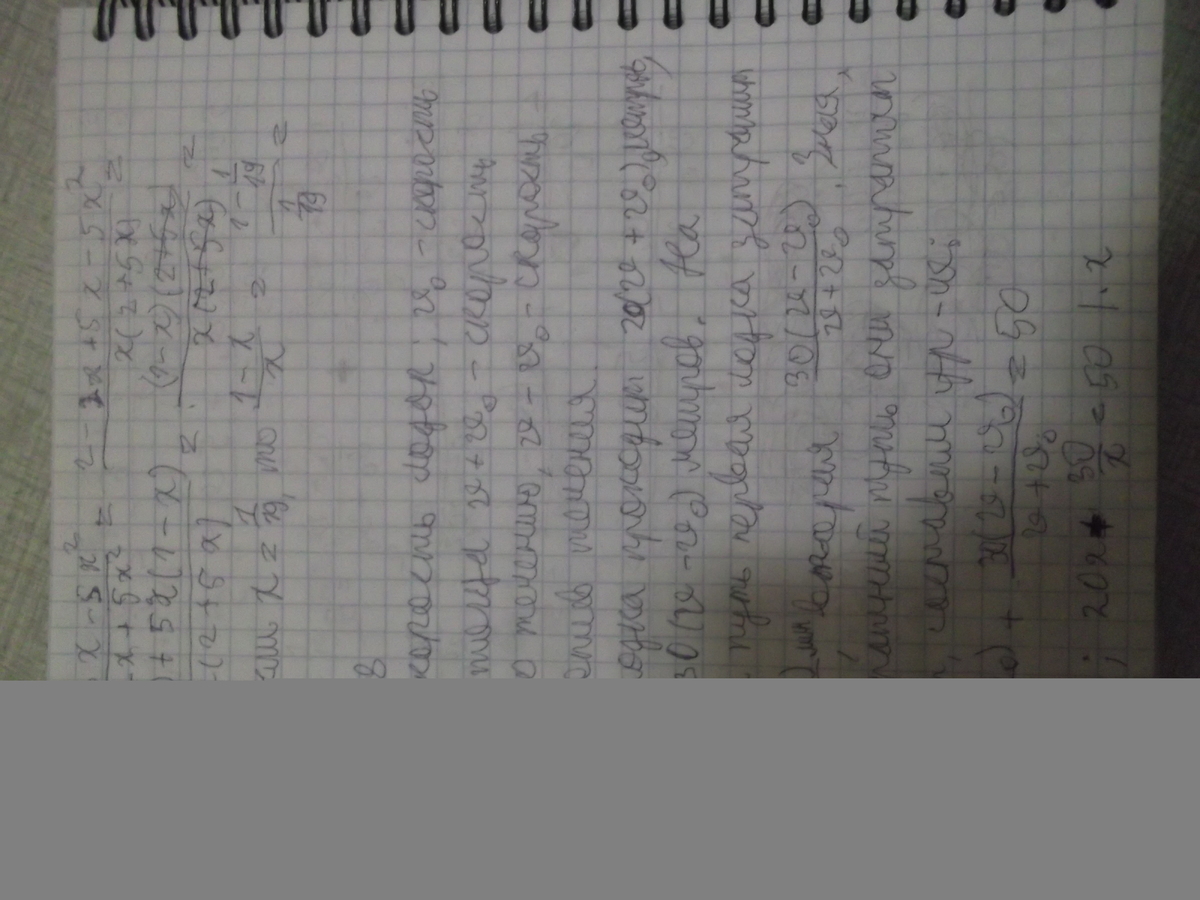 x - 5x² / x + 5x² = 2 - 2x + 5x - 5x² / x(2+5x) =
) + 5x(1 - x) / (2+5x) = (1-x)(2+5x) / x(2+5x) =
x = 1/19, то 1-x / x = 1 - 1/19 / 1/19 =
8
корость лодок; v₀ - скорость
v + v₀ - скорость
о течению, v - v₀ - скорость
отив течения.
одка проходит 20(v + v₀) метров,
30(v - v₀) метров. На
путь первая лодка
) мин, вторая 30(v - v₀) / v + v₀. Зная,
путь они затратили
составим ур-ия:
₀) + 30(v - v₀) / v + v₀ = 50
; 20x + 30/x = 50 |·x